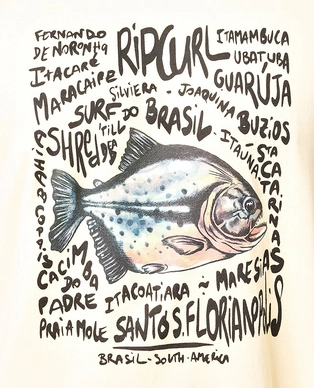 FERNANDO
DE NORONHA
RIPCURL
ITAMAMBUCA
UBATUBA
ITACARÉ
GUARÚJA
MARACAIPE
SILVIERA - JOAQUINA
SURF DO BRASIL - BUZIOS
SHRED 'TILL
ITAÚNA
STA
CATARINAS
CACIMBA
DO
PADRE
ITACOATIARA ~ MARESIAS
PRAIA MOLE SANTOS. FLORIANOPOLIS
BRASIL - SOUTH - AMERICA